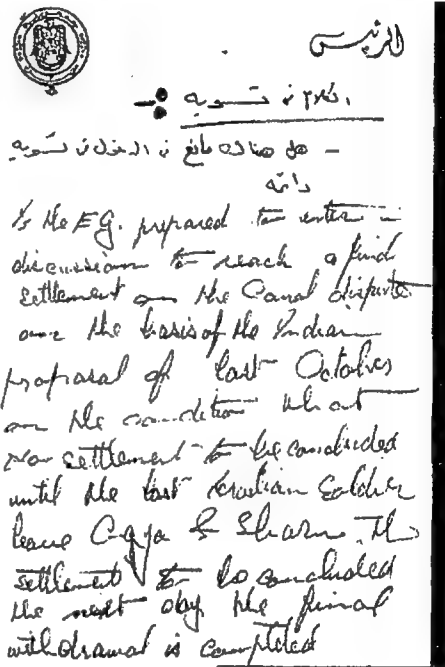 الرئيس
الكلام فى تسويه
- هل هناك مانع فى الدخول فى تسويه
دائمه
Is the E.G. prepared to enter in
discussion to reach a final
settlement on the Canal dispute
on the basis of the Indian
proposal of last October
on the condition that
no settlement to be concluded
until the last Israelian soldier
leave Gaza & Sharm. The
settlement to be concluded
the next day the final
withdrawal is completed